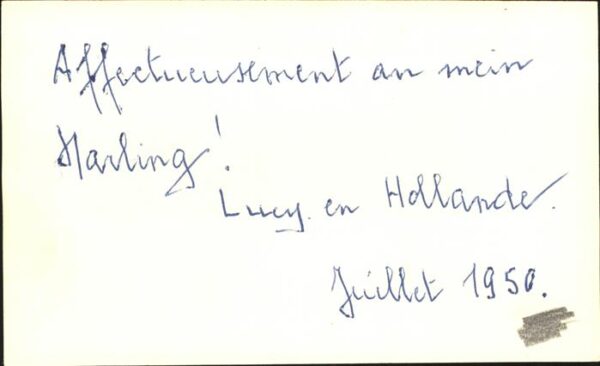 Affectueusement an mein
Harling!
Lucy. en Hollande.
Juillet 1950.